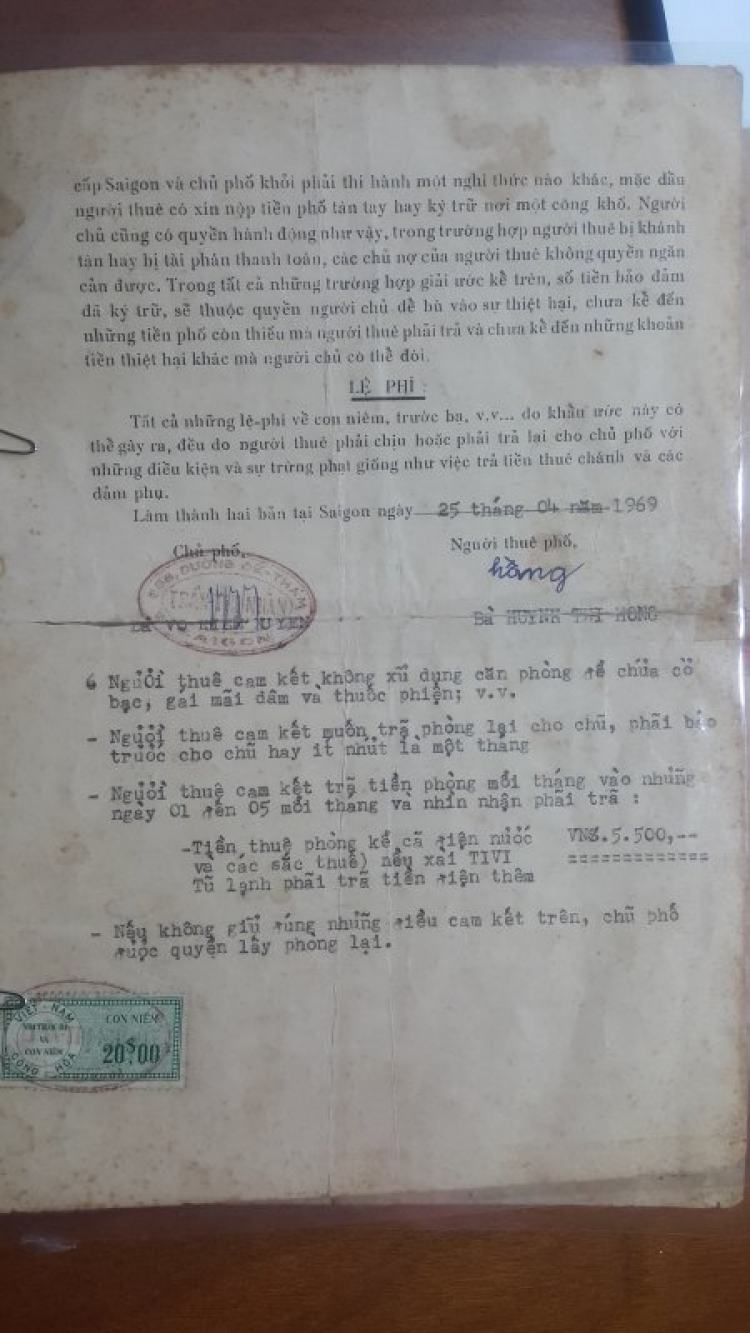 cấp Saigon và chủ phố khỏi phải thi hành một nghi thức nào khác, mặc dầu
người thuê có xin nộp tiền phố tận tay hay ký trữ nơi một công khố. Người
chủ cũng có quyền hành động như vậy, trong trường hợp người thuê bị khánh
tận hay bị tài phán thanh toán, các chủ nợ của người thuê không quyền ngăn
cản được. Trong tất cả những trường hợp giải ước kể trên, số tiền bảo đảm
đã ký trữ, sẽ thuộc quyền người chủ để bù vào sự thiệt hại, chưa kể đến
những tiền phố còn thiếu mà người thuê phải trả và chưa kể đến những khoản
tiền thiệt hại khác mà người chủ có thể đòi.
LỆ PHÍ :
Tất cả những lệ-phí về con niêm, trước bạ, v.v... do khẩu ước này có
thể gây ra, đều do người thuê phải chịu hoặc phải trả lại cho chủ phố với
những điều kiện và sự trừng phạt giống như việc trả tiền thuê chánh và các
đảm phụ.
Làm thành hai bản tại Saigon ngày 25 tháng 04 năm 1969
Chủ phố,
Người thuê phố,
hồng
ĐƯỜNG ĐỀ-THÁM
SAIGON
Bà VO
Bà HUYNH THI HONG
6 Nguời thuê cam kết không xủ dụng căn phòng để chứa cờ
bạc, gái mãi dâm và thuốc phiện; v.v.
- Nguời thuê cam kết muốn trã phòng lại cho chũ, phãi báo
truóc cho chũ hay ít nhứt là một tháng
- Nguời thuê cam kết trã tiền phòng mỗi tháng vào nhũng
ngày 01 đến 05 mỗi tháng và nhìn nhận phãi trã :
-Tiền thuê phòng kể cã điện nuóc VN$.5.500,--
và các sắc thuế) nếu xài TIVI =============
Tũ lạnh phãi trã tiền điện thêm
- Nếu không giũ đúng nhũng điều cam kết trên, chũ phố
đuọc quyền lấy phòng lại.
VIỆT-NAM
CỘNG-HÒA
VÀ
CON NIÊM
CON NIÊM
20$00